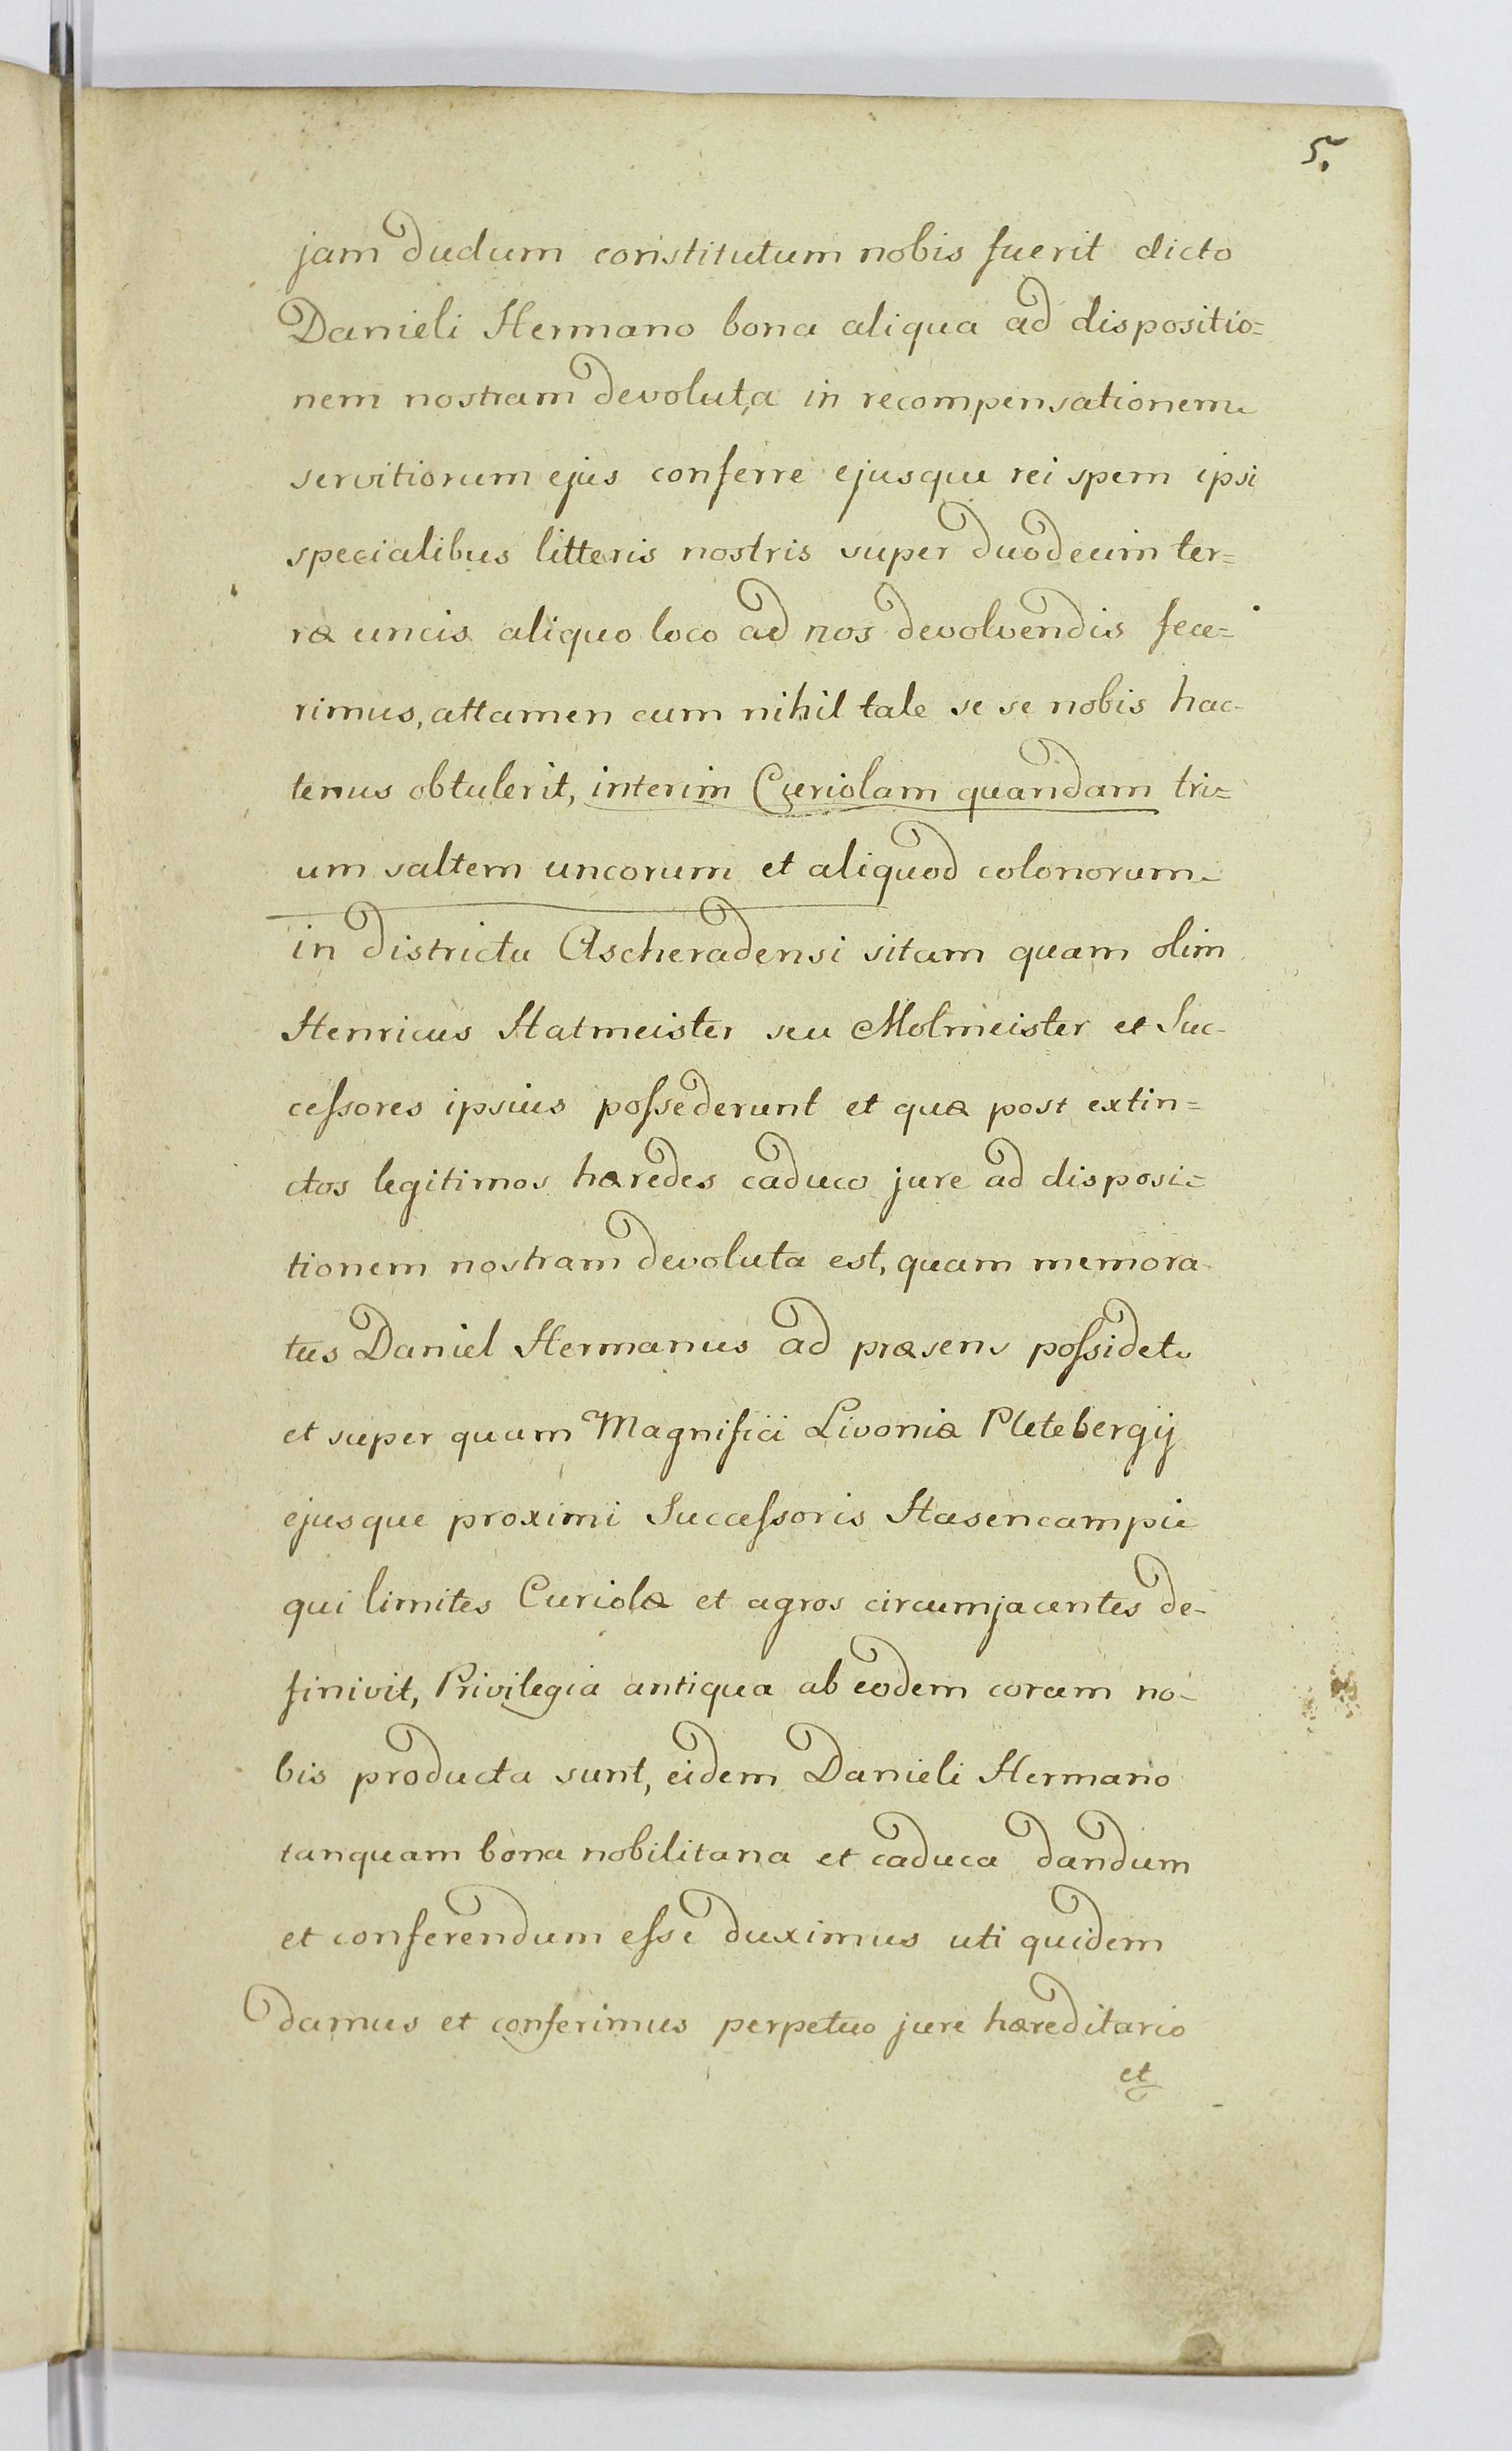 5.
jam dudum constitutum nobis fuerit dicto
Danieli Hermano bona aliqua ad dispositio=
nem nostram devoluta in recompensationem
servitiorum ejus conferre ejusque rei spem ipsi
specialibus litteris nostris super duodecim ter=
ræ uncis aliquo loco ad nos devolvendis fece=
rimus, attamen cum nihil tale se se nobis hac-
tenus obtulerit, interim Curiolam quandam tri=
um saltem uncorum et aliquod colonorum
in districtu Ascheradensi sitam quam olim
Henricus Hatmeister seu Molmeister et Suc-
cessores ipsius possederunt et quæ post extin=
ctos legitimos hæredes caduco jure ad disposi=
tionem nostram devoluta est, quam memora-
tus Daniel Hermanus ad præsens possidet
et super quam Magnifici Livoniæ Pletebergij
ejusque proximi Successoris Hasencampii
qui limites Curiolæ et agros circumjacentes de-
finivit, Privilegia antiqua ab eodem coram no-
bis producta sunt, eidem Danieli Hermano
tanquam bona nobilitana et caduca dandum
et conferendum esse duximus uti quidem
damus et conferimus perpetuo jure hæreditario
et